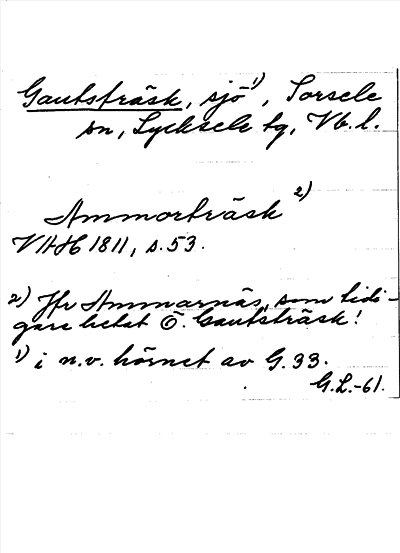 Gautsträsk, sjö 1), Sorsele
sn, Lycksele tg, Vb. l.
Ammorträsk 2)
VAH 1811, s. 53.
2) Jfr Ammarnäs, som tidi-
gare hetat Ö. Gautsträsk!
1) i n.v. hörnet av G. 33.
G.L.-61.